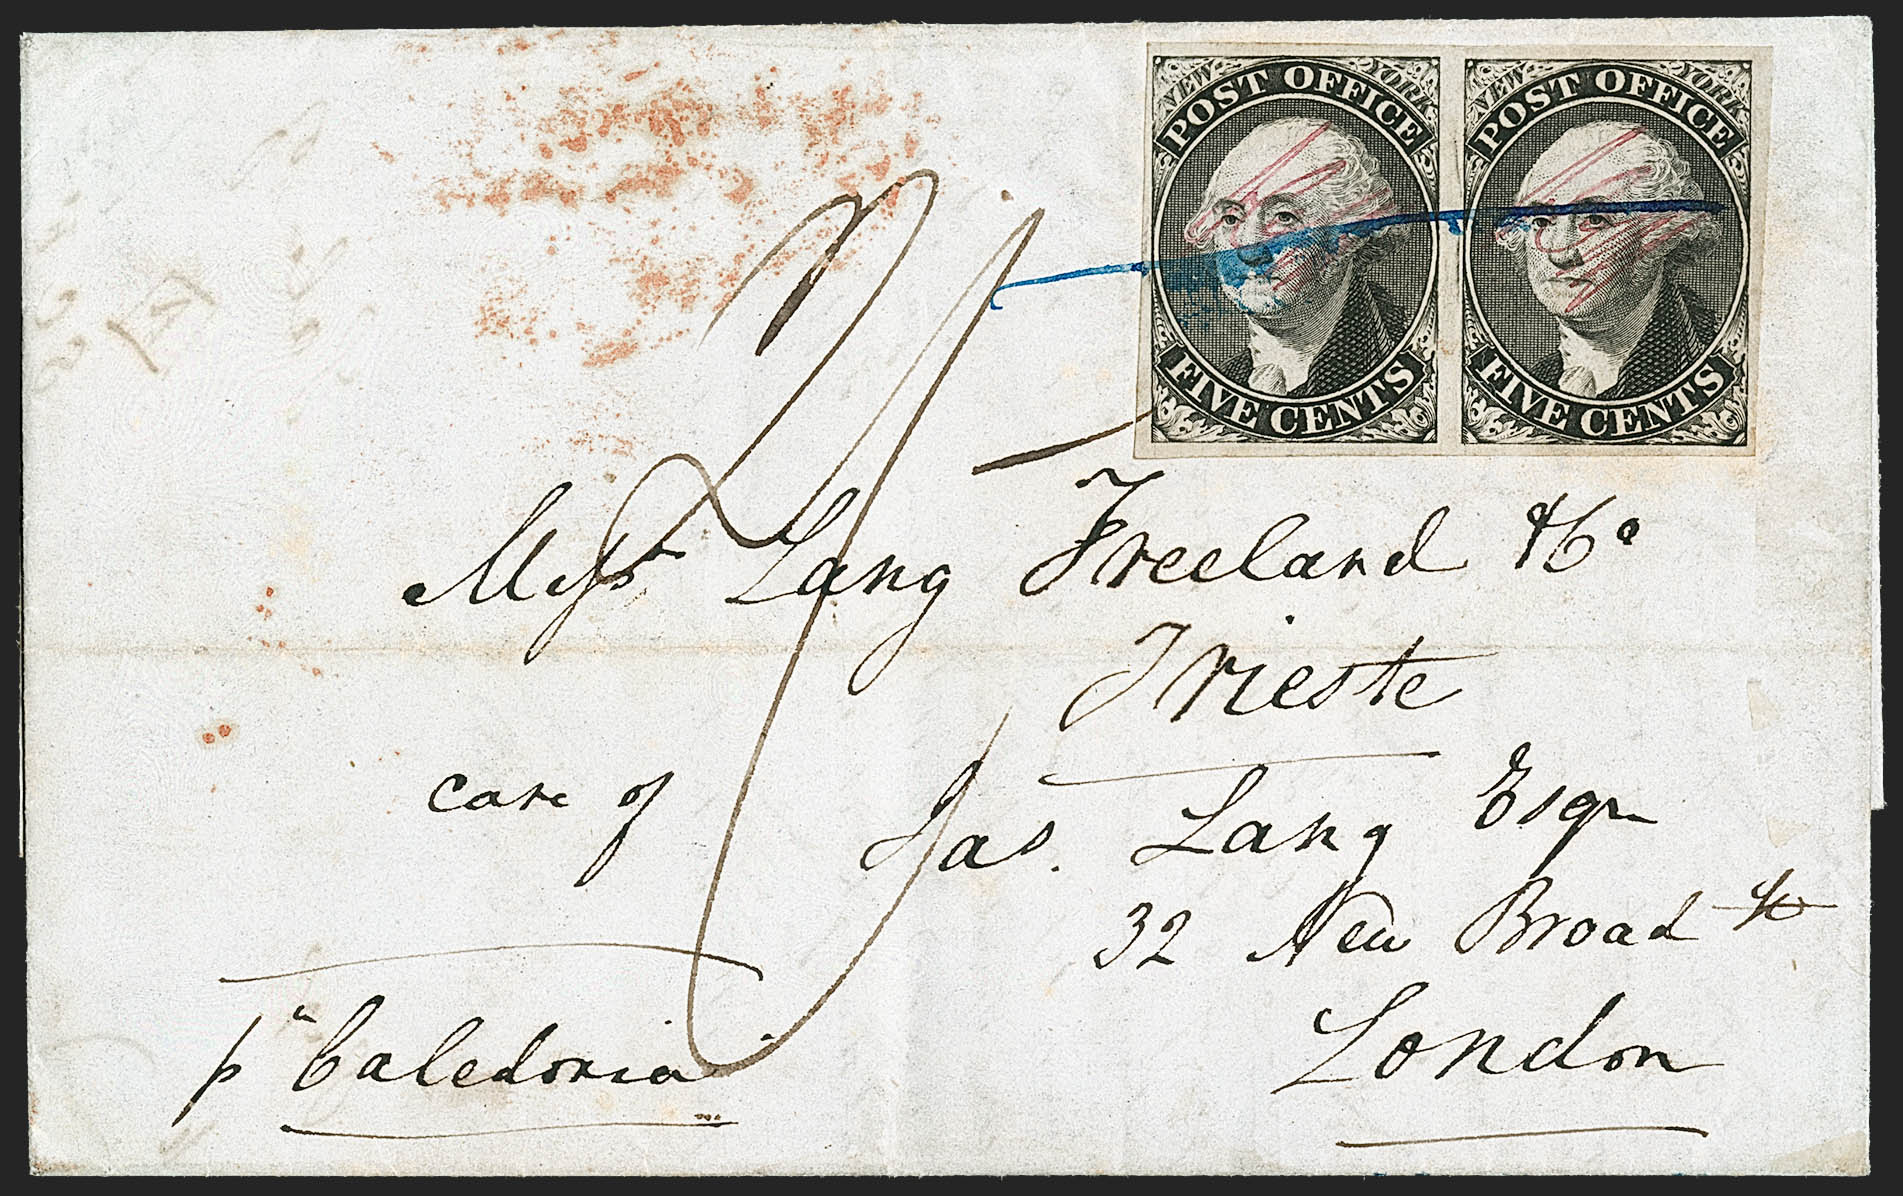 NEW YORK
POST OFFICE
FIVE CENTS
NEW YORK
POST OFFICE
FIVE CENTS
Messrs Lang Freeland & Co
Trieste
care of Jas. Lang Esqr
32 New Broad St
London
pr Caledonia